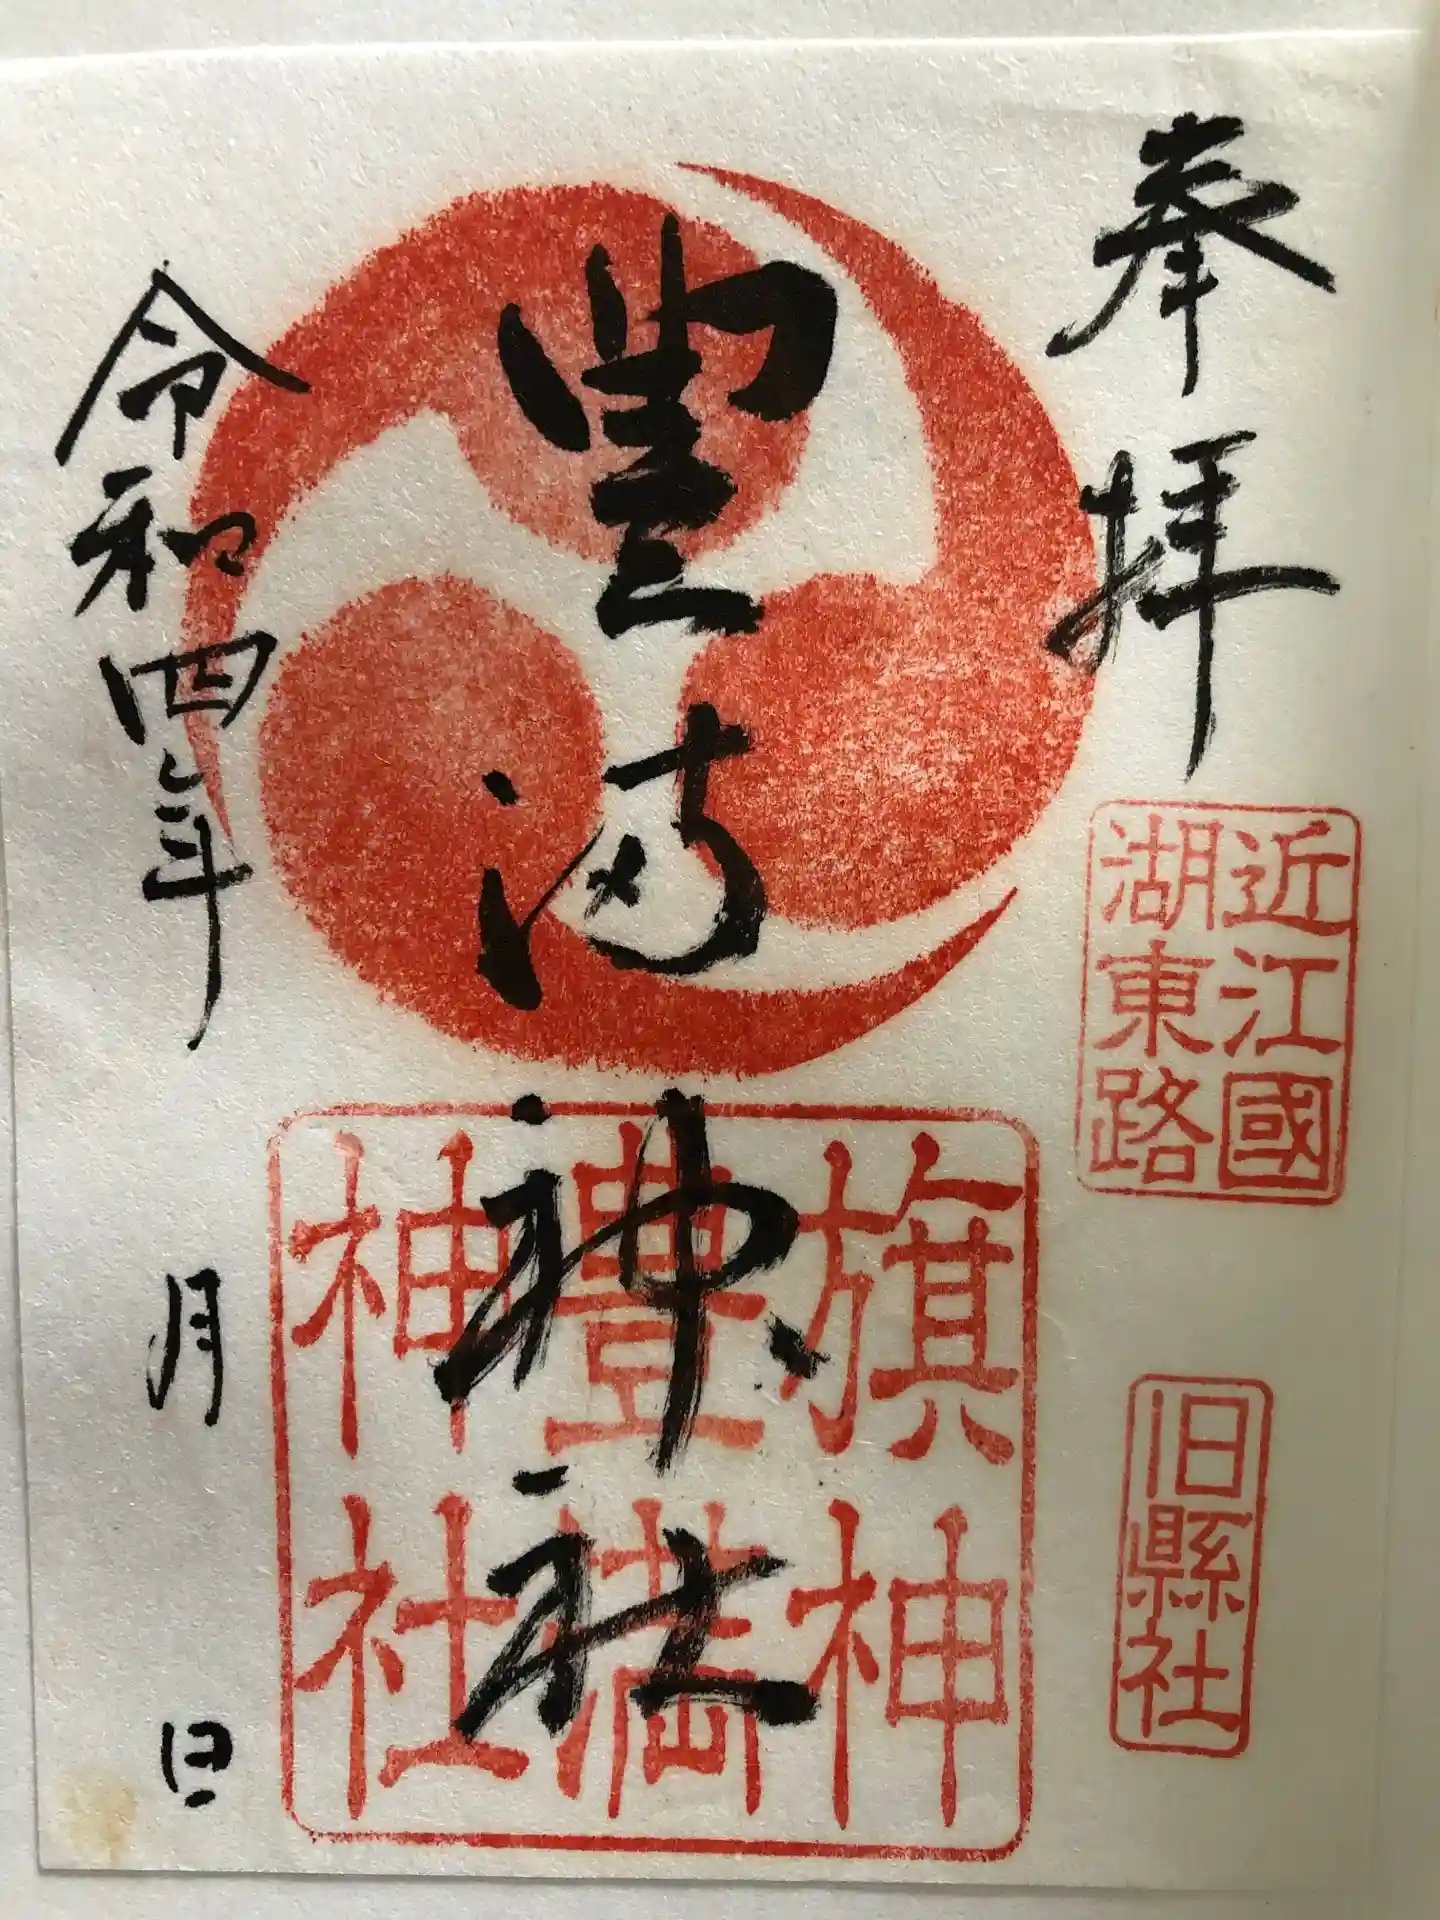 奉拝
近江國
湖東路
旧縣社
豊満神社
旗神
豊満
神社
令和四年
月
日